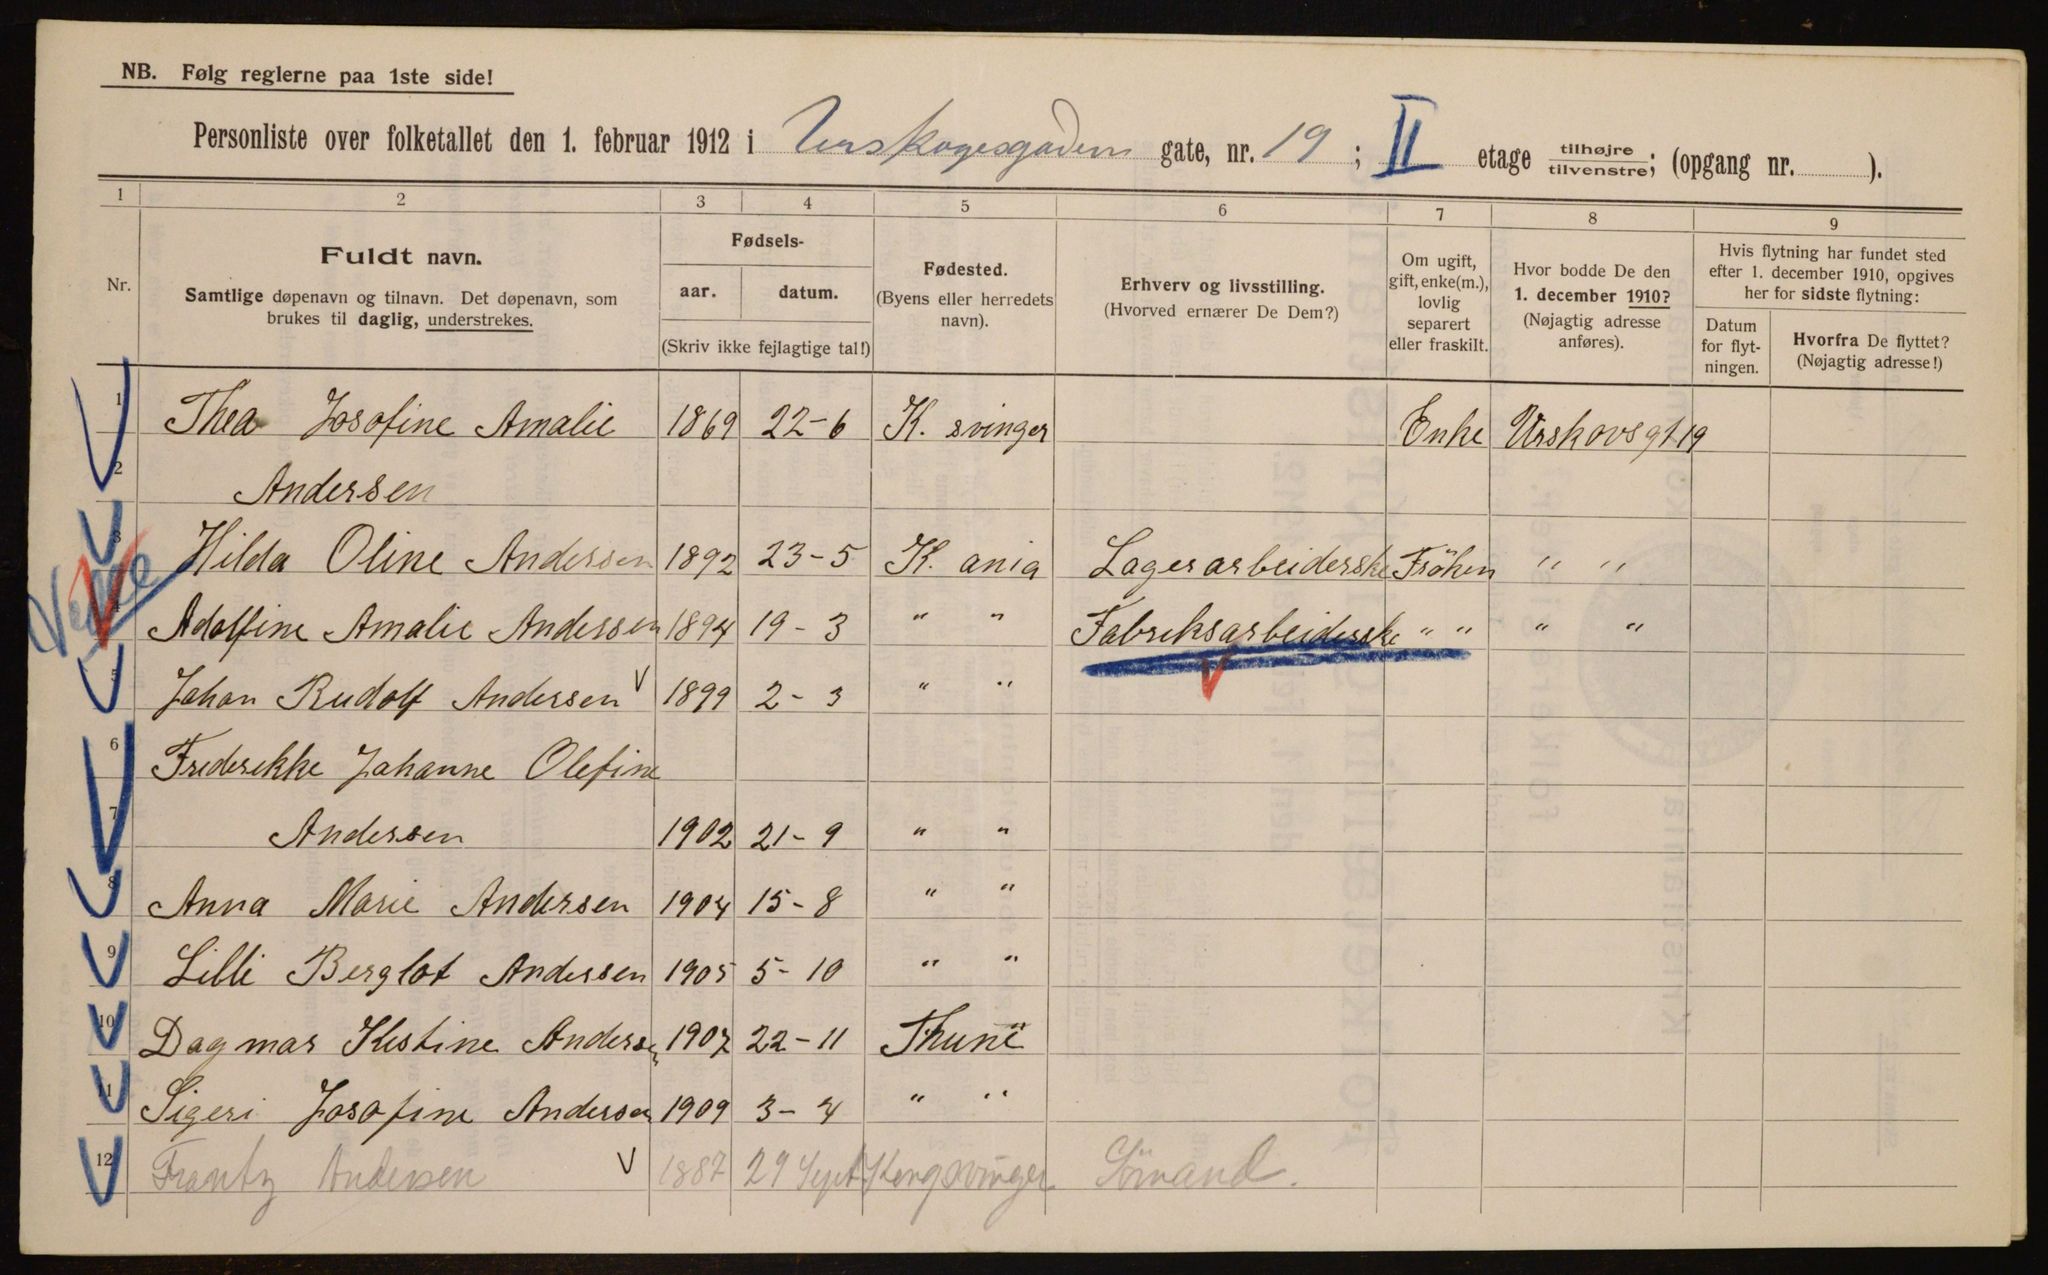 NB. Følg reglerne paa 1ste side!
Personliste over folketallet den 1. februar 1912 i Urskogsgaden gate, nr. 19; II etage tilhøjre/tilvenstre; (opgang nr. ).
1 2 3 4 5 6 7 8 9
Nr.
Fuldt navn.
Samtlige døpenavn og tilnavn. Det døpenavn, som
brukes til daglig, understrekes.
Fødsels-
aar. datum.
(Skriv ikke fejlagtige tal!)
Fødested.
(Byens eller herredets
navn).
Erhverv og livsstilling.
(Hvorved ernærer De Dem?)
Om ugift,
gift, enke(m.),
lovlig
separert
eller fraskilt.
Hvor bodde De den
1. december 1910?
(Nøjagtig adresse
anføres).
Hvis flytning har fundet sted
efter 1. december 1910, opgives
her for sidste flytning:
Datum
for flyt-
ningen.
Hvorfra De flyttet?
(Nøjagtig adresse!)
1 Thea Josofine Amalie 1869 22-6 K. svinger Enke Urskovsgt 19
2 Andersen
3 Hilda Oline Andersen 1892 23-5 K. ania Lagerarbeiderske Fröken " "
4 Adolfine Amalie Andersen 1894 19-3 " " Fabriksarbeiderske " " " "
5 Johan Rudolf Andersen 1899 2-3 " "
6 Frederikke Johanne Olefine
7 Andersen 1902 21-9 " "
8 Anna Marie Andersen 1904 15-8 " "
9 Lilli Berglot Andersen 1905 5-10 " "
10 Dagmar Kestine Andersen 1907 22-11 Thune
11 Sigeri Josofine Andersen 1909 3-4 " "
12 Frantz Andersen 1887 29 Sept. Kongsvinger Sömand.